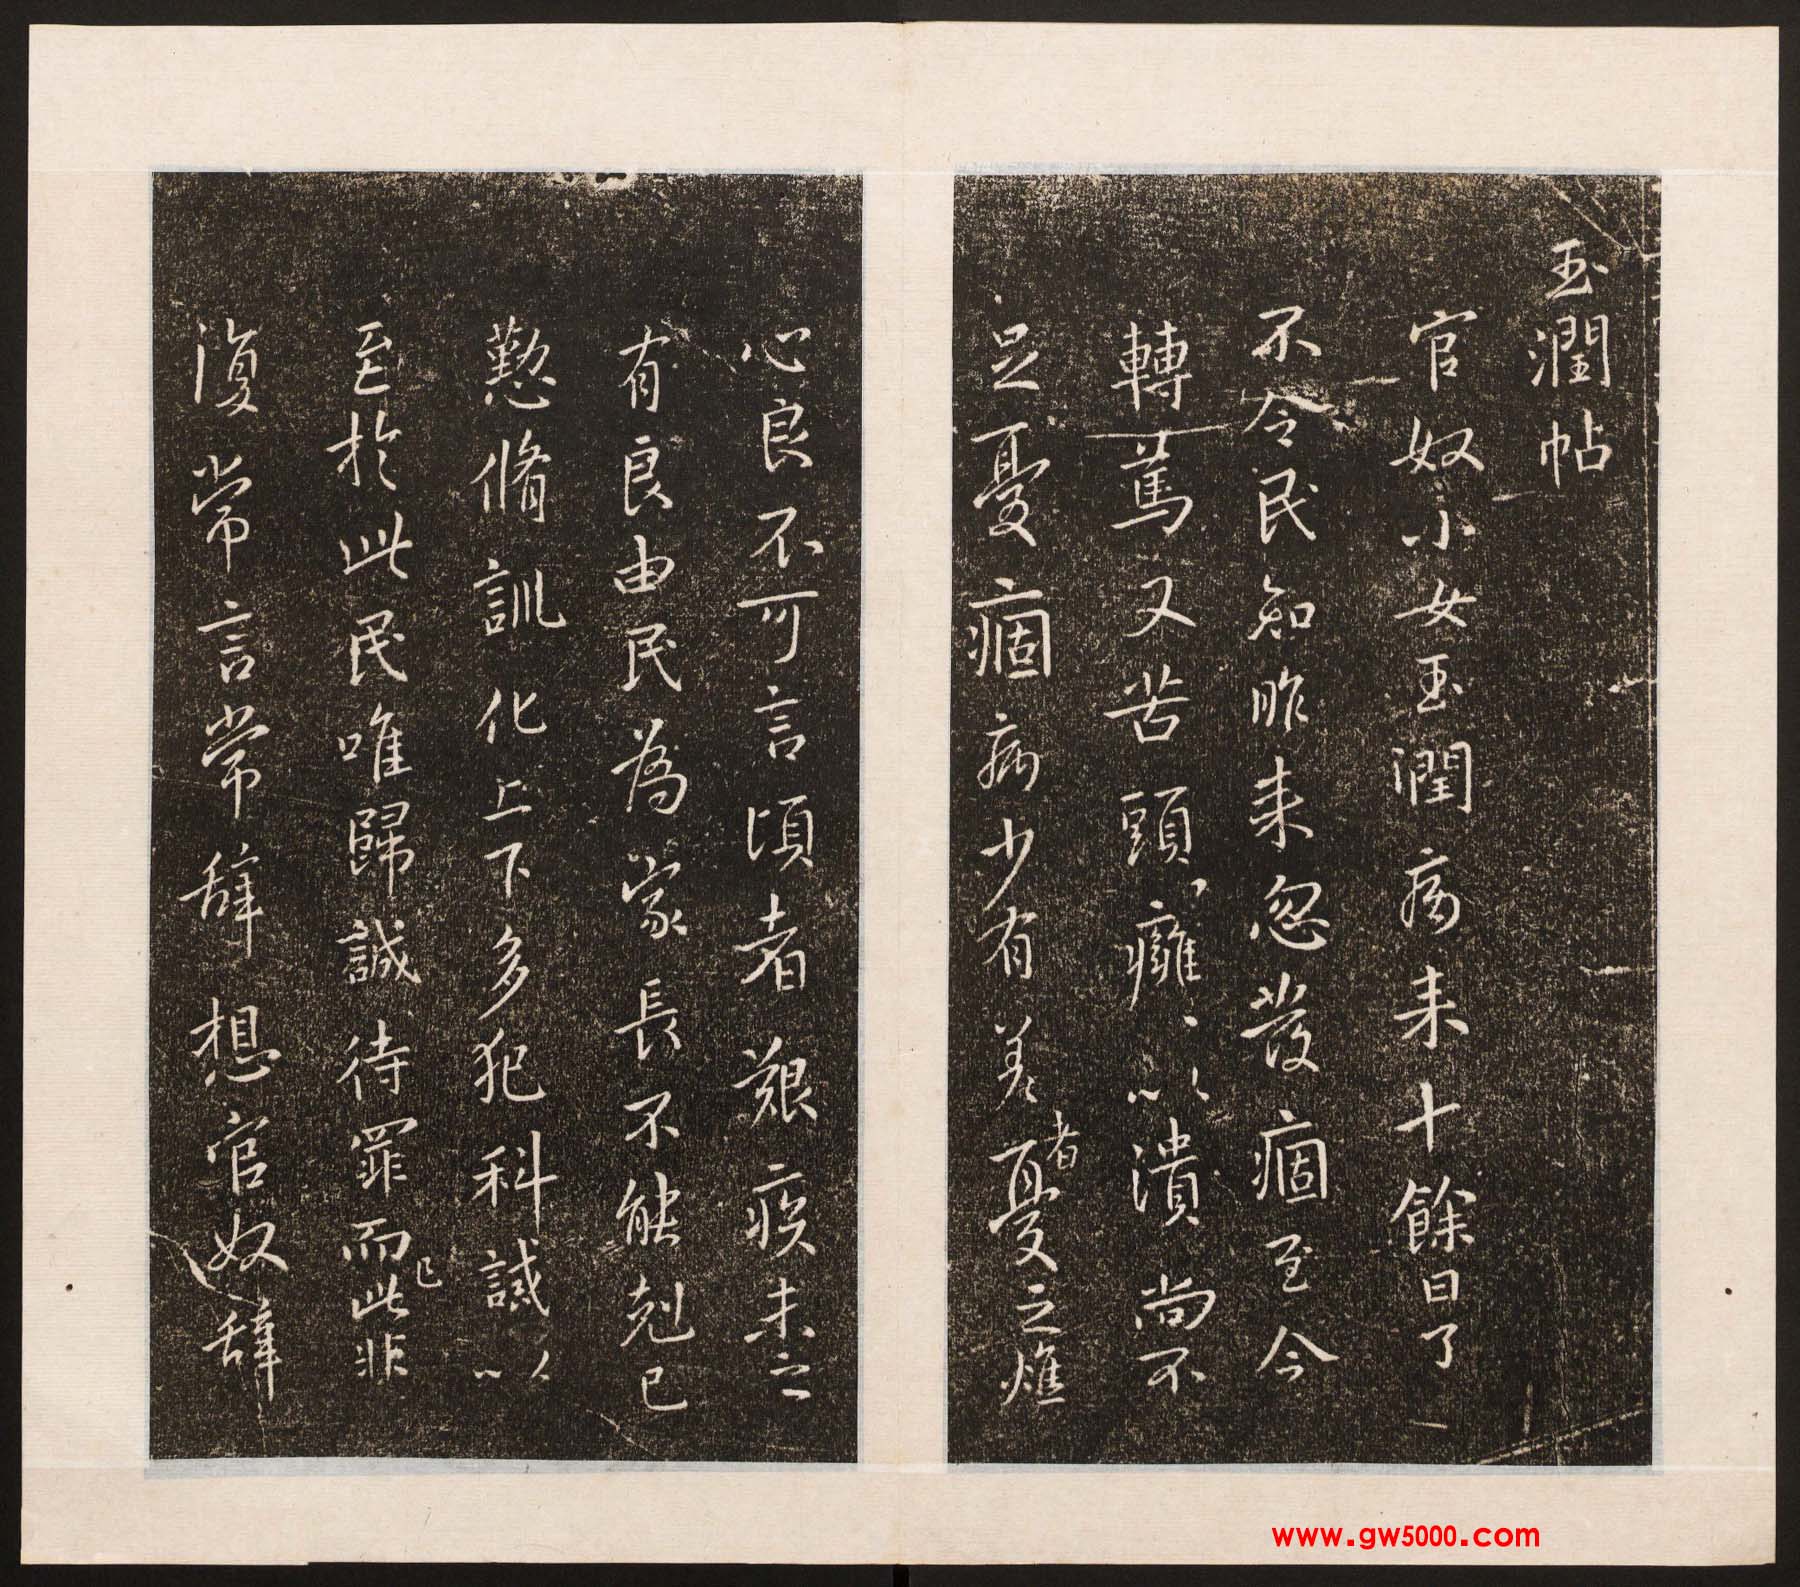 玉潤帖
官奴小女玉潤病来十餘日了
不令民知昨来忽發痼至今
轉篤又苦頭癰、以潰尚不
足憂痼病少有差者憂之燋
心良不可言頃者艱疾未之
有良由民為家長不能剋己
懃脩訓化上下多犯科誡以
至於此民唯歸誠待罪而已此非
復常言常辭想官奴辭
www.gw5000.com